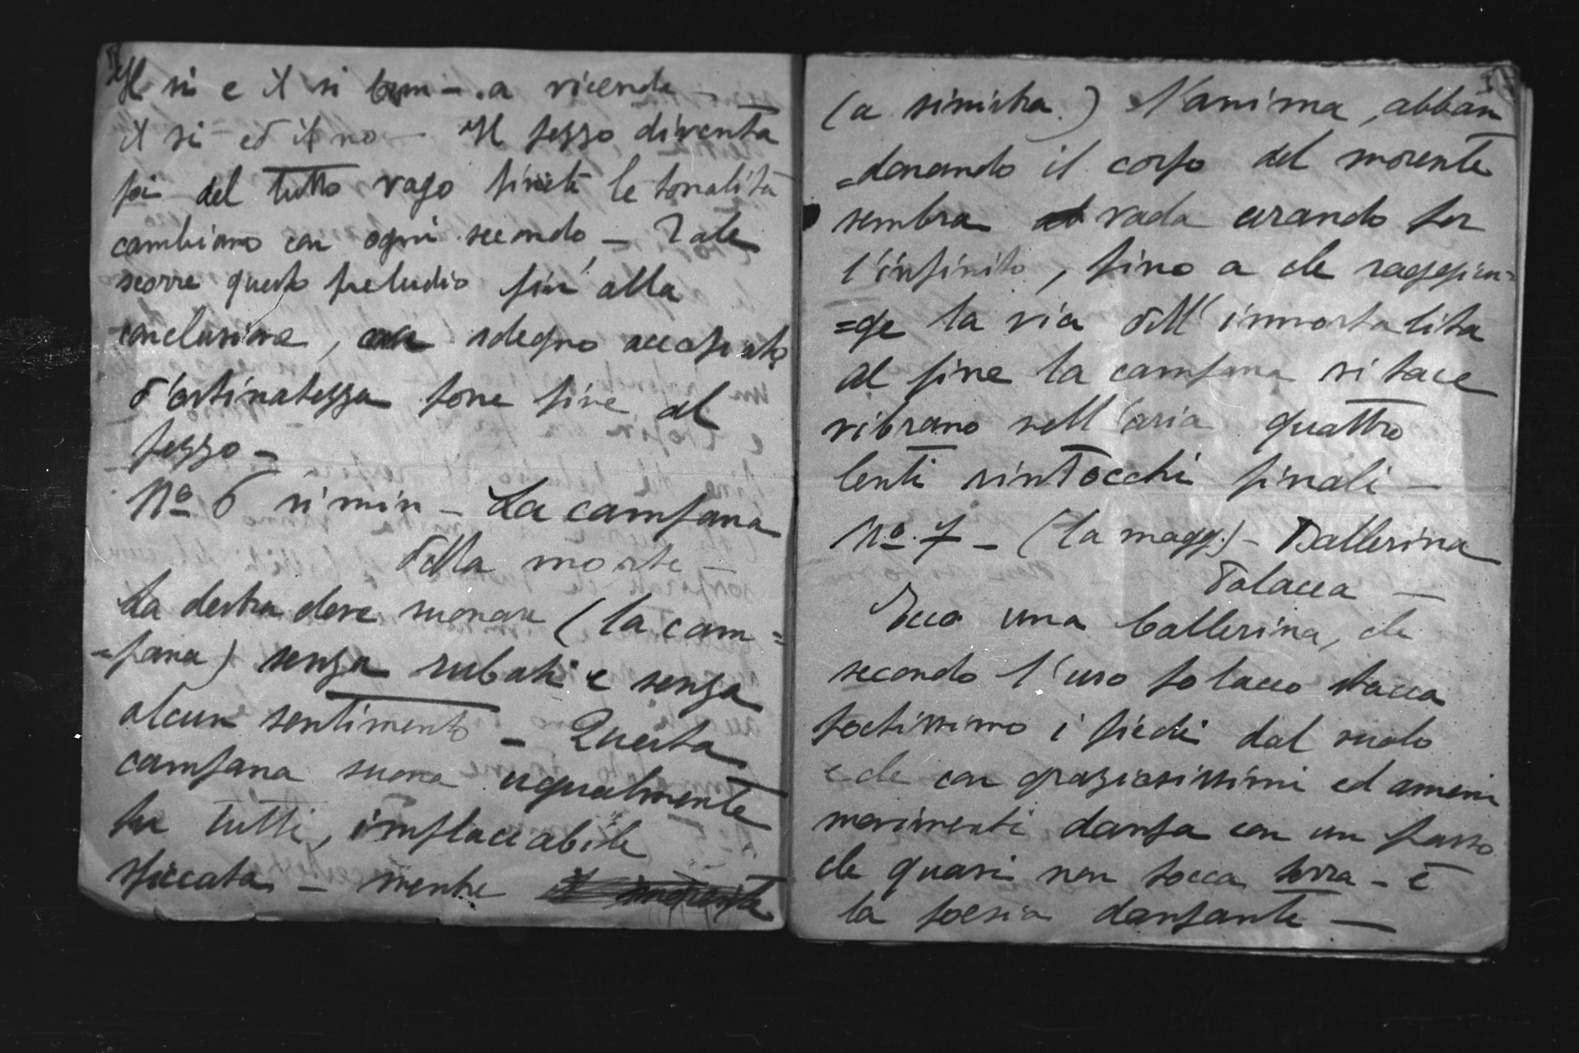 Il si e il si bem - a vicenda -
il si - ed il no - Il pezzo diventa
poi del tutto vago finchè le tonalità
cambiano con ogni secondo, - Tale
scorre questo preludio fin' alla
conclusione, sdegno accoppiato
d'ostinatezza pone fine al
pezzo -
No 6 si min - La campana
della morte -
La destra deve suonare (la cam=
=pana) senza rubati e senza
alcun sentimento - Questa
campana suona ugualmente
per tutti, implacabile
spiccata - mentre
(a sinistra.) l'anima, abban
=donando il corpo del morente
sembra vada errando per
l'infinito, fino a che raggiun=
=ge la via dell'immortalità
al fine la campana si tace
vibrano nell'aria quattro
lenti rintocchi finali -
No. 7 - (la magg.) - Ballerina
Polacca -
Ecco una ballerina, che
secondo l'uso polacco stacca
pochissimo i piedi dal suolo
e che con graziosissimi ed ameni
movimenti danza con un passo
che quasi non tocca terra - è
la poesia danzante -